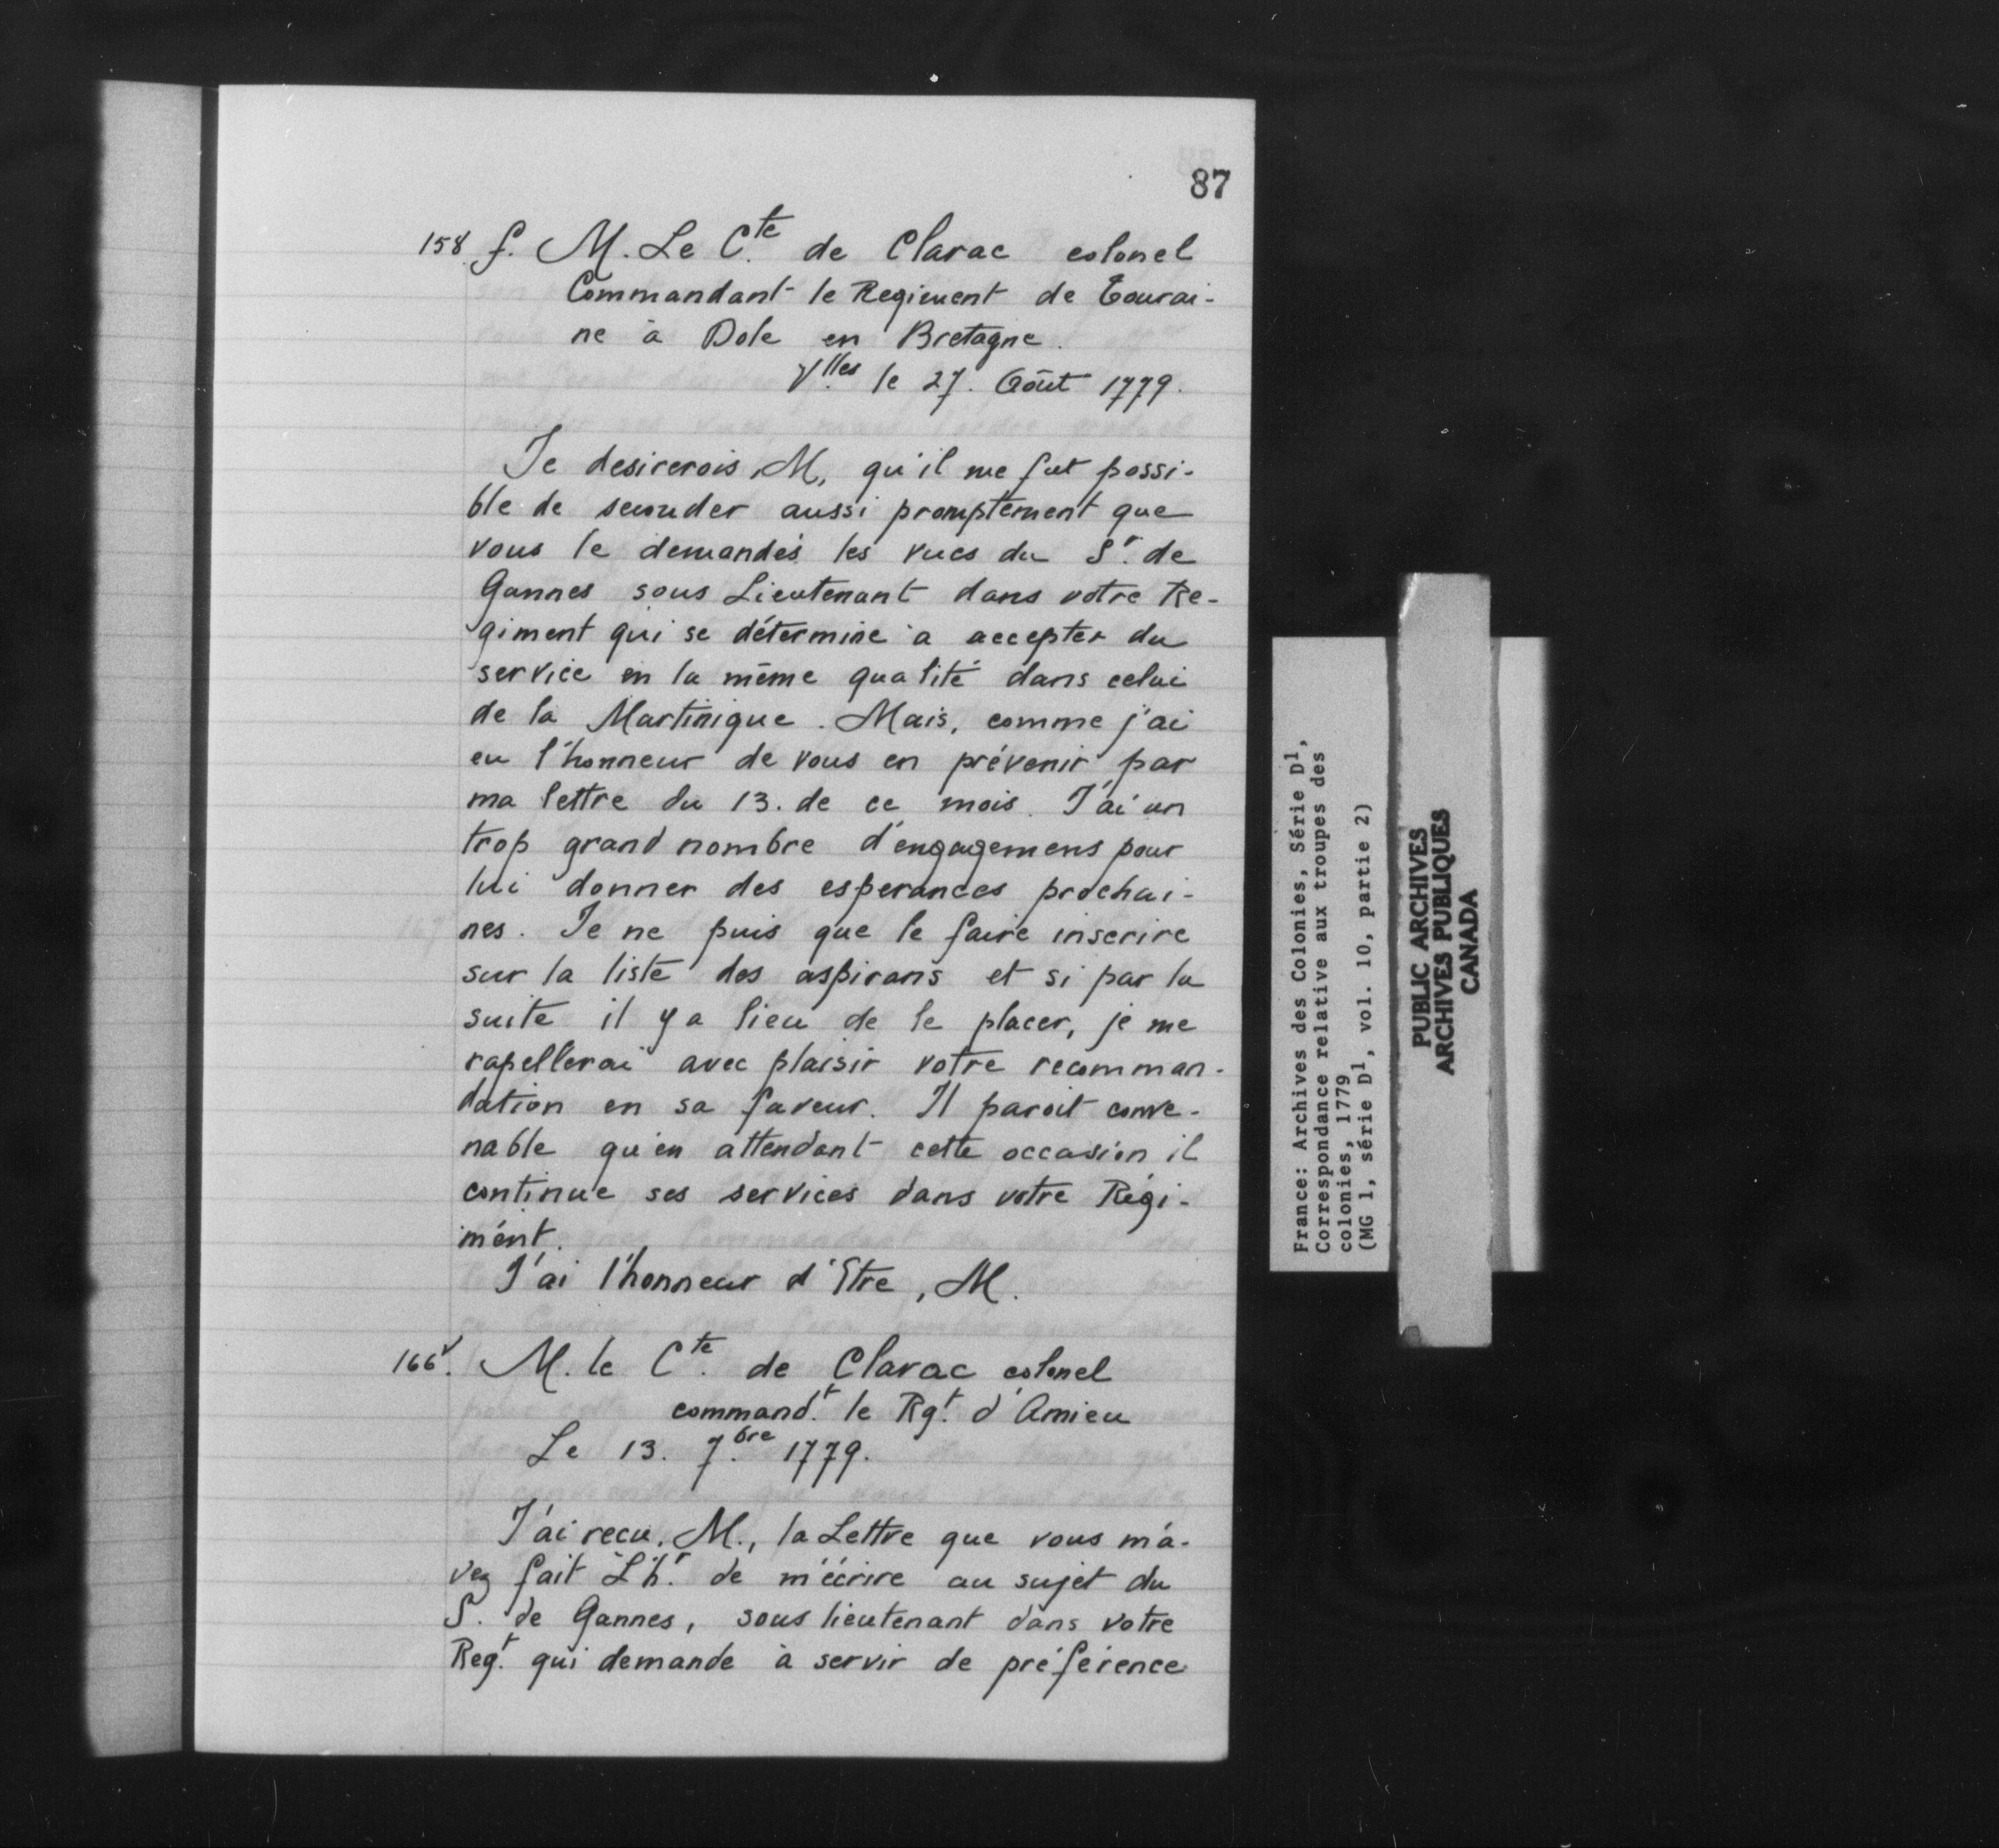 87
158 f. M. Le Cte de Clarac colonel
Commandant le Regiment de Tourai-
ne à Dole en Bretagne.
Vlles le 27. Août 1779.
Je desirerois, M, qu'il me fut possi-
ble de seconder aussi promptement que
vous le demandés les vues du Sr. de
Gannes sous Lieutenant dans votre Re-
giment qui se détermine à accepter du
service en la même qualité dans celui
de la Martinique. Mais, comme j'ai
eu l'honneur de vous en prévenir par
ma lettre du 13. de ce mois. J'ai un
trop grand nombre d'engagemens pour
lui donner des esperances prochai-
nes. Je ne puis que le faire inscrire
sur la liste des aspirans et si par la
suite il y a lieu de le placer, je me
rapellerai avec plaisir votre recomman-
dation en sa faveur. Il paroit conve-
nable qu'en attendant cette occasion il
continue ses services dans votre Régi-
ment.
J'ai l'honneur d'Etre, M.
166v. M. le Cte. de Clarac colonel
command.t le Rg.t d'Amieu
Le 13. 7.bre 1779.
J'ai recu, M., la Lettre que vous m'a-
vez fait L'h.r de m'écrire au sujet du
S. de Gannes, sous lieutenant dans votre
Reg.t qui demande à servir de préférence
France: Archives des Colonies, Série D1,
Correspondance relative aux troupes des
colonies, 1779
(MG 1, série D1, vol. 10, partie 2)
PUBLIC ARCHIVES
ARCHIVES PUBLIQUES
CANADA